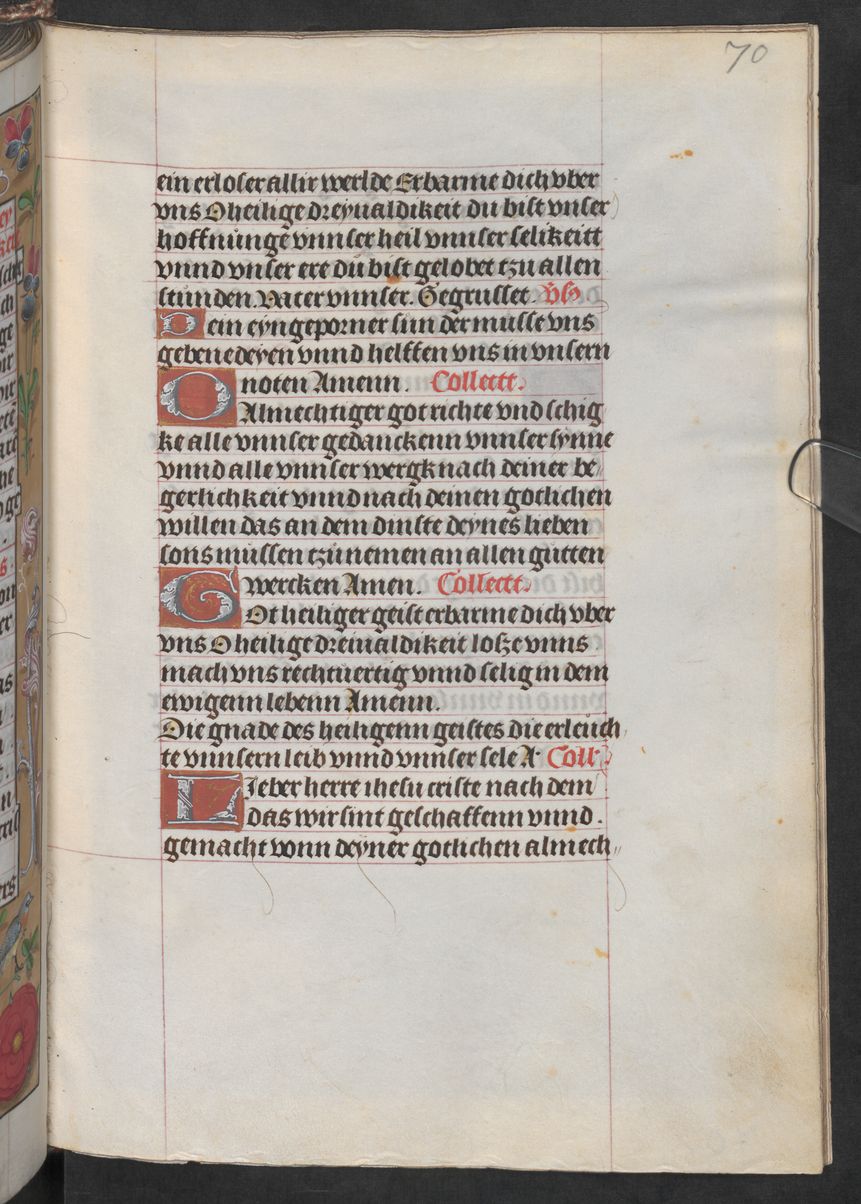 70
ein erloser allir werlde Erbarme dich vber
vns O heilige dreyualdikeit du bist vnser
hoffnunge vnnser heil vnnser selikeitt
vnnd vnser ere du bist gelobet tzu allen
stunden. Vater vnnser. Gegrusset. Vs
Dein eyngeporner sun der musse vns
gebenedeyen vnnd helffen vns in vnsern
noten Amenn. Collectt.
O Almechtiger got richte vnd schig
ke alle vnnser gedanckenn vnnser synne
vnnd alle vnnser wergk nach deiner be
gerlichkeit vnnd nach deinen gotlichen
willen das an dem dinste deynes lieben
sons mussen tzunemen an allen gutten
wercken Amen. Collectt.
Got heiliger geist erbarme dich vber
vns O heilige dreiualdikeit losze vnns
mach vns rechtuertig vnnd selig in dem
ewigenn lebenn Amenn.
Die gnade des heiligenn geistes die erleuch
te vnnsern leib vnnd vnnser sele A Coll
Lieber herre ihesu criste nach dem
das wir sint geschaffenn vnnd.
gemacht vonn deyner gotlichen almech